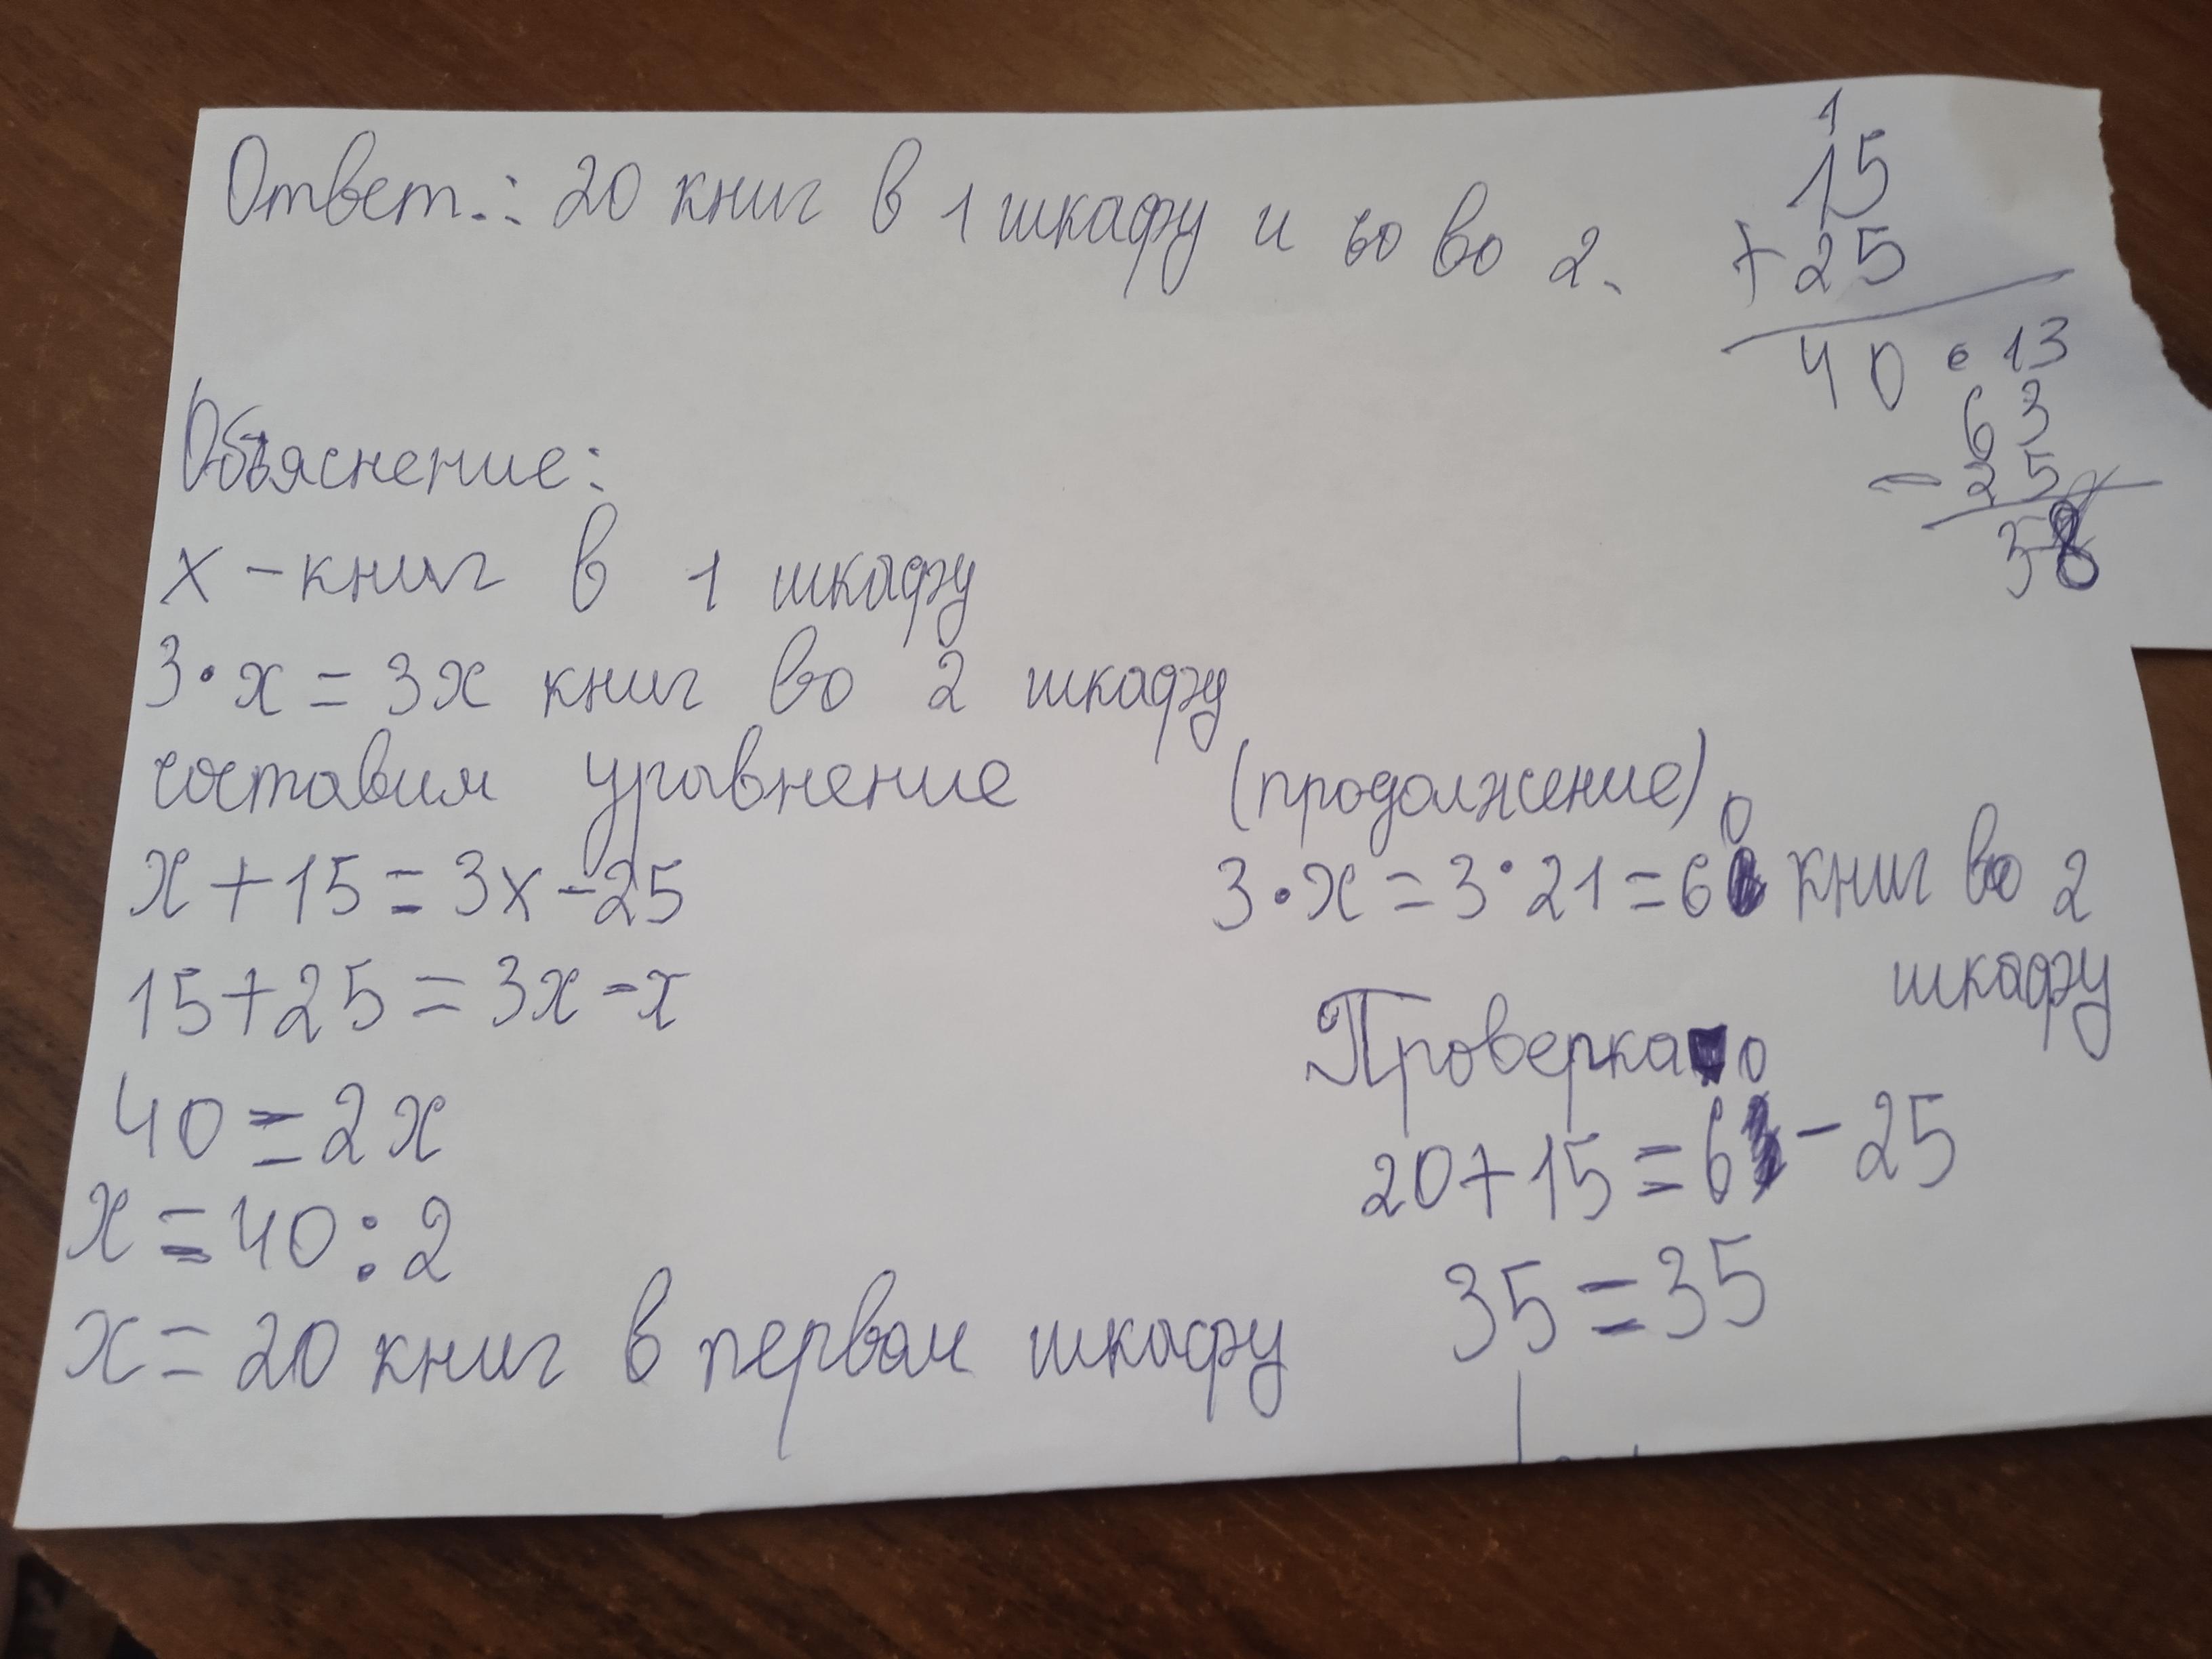 Ответ.: 20 книг в 1 шкафу и 60 во 2.
1
15
+25
40
13
63
-25
38
Объяснение:
x - книг в 1 шкафу
3·x = 3x книг во 2 шкафу
составим уравнение
x+15=3x-25
15+25=3x-x
40=2x
x=40:2
x=20 книг в первом шкафу
(продолжение)
3·x=3·21=60 книг во 2
шкафу
Проверка
20+15=60-25
35=35